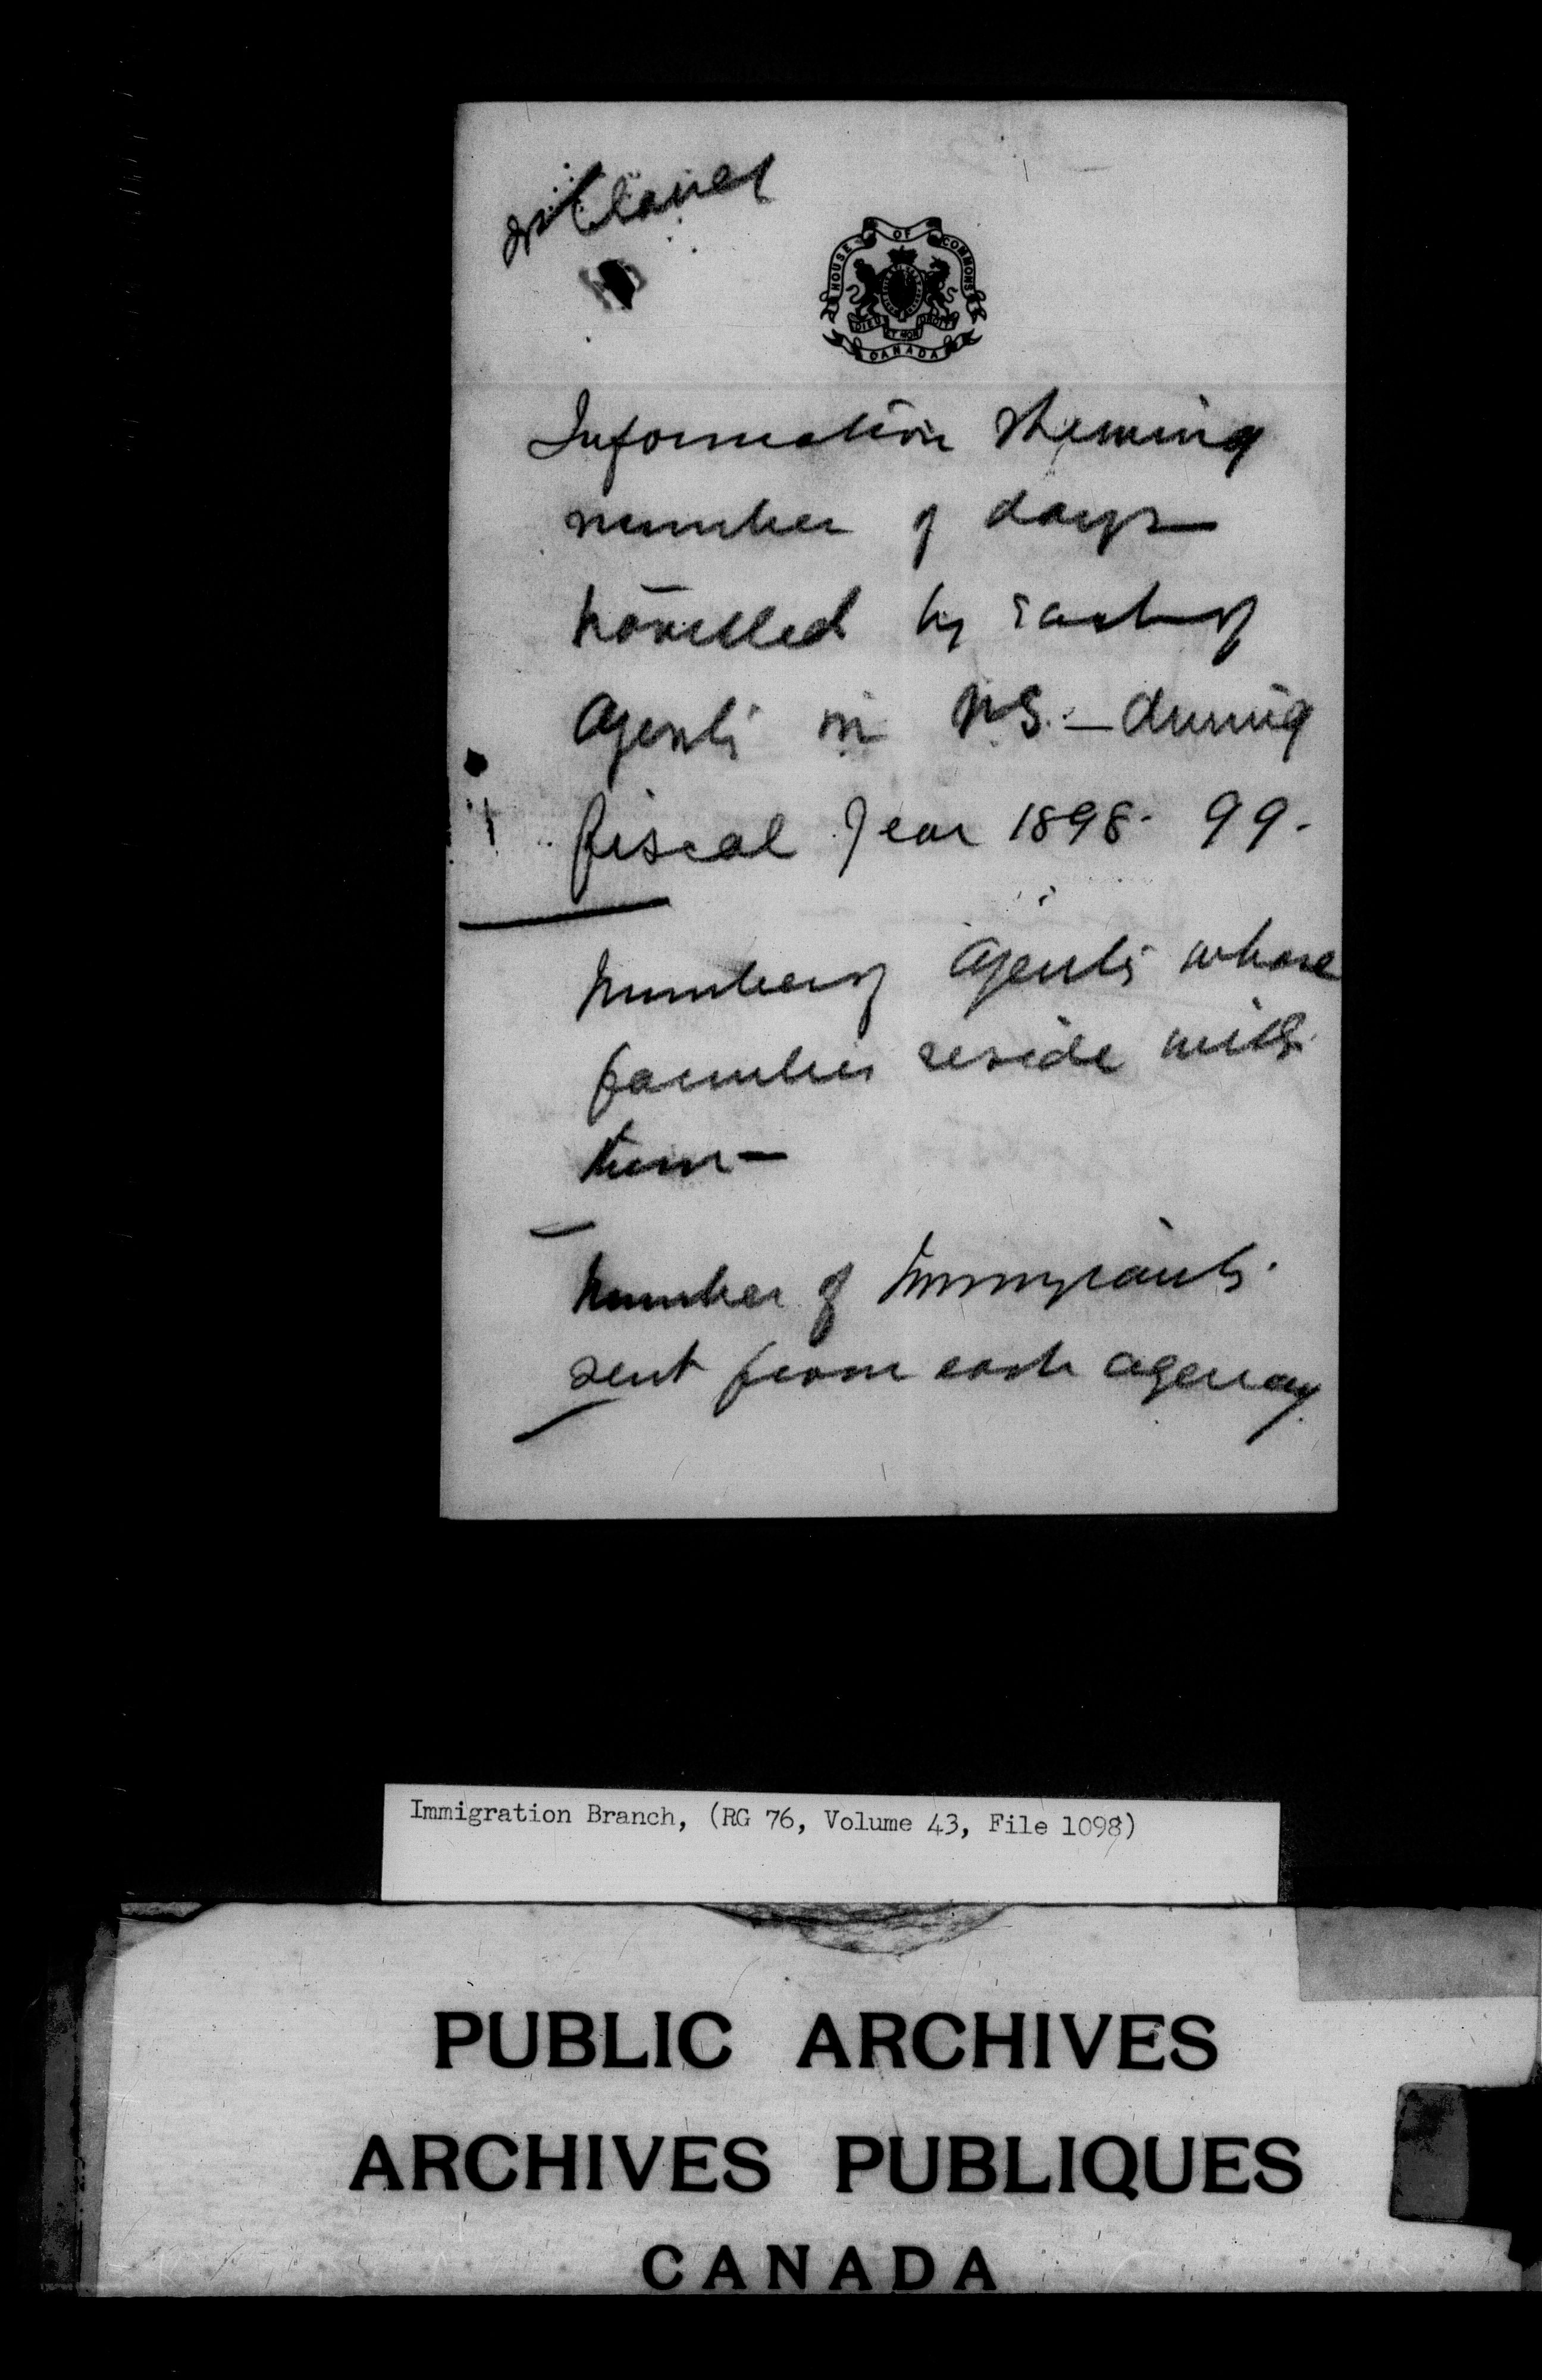 HOUSE OF COMMONS
DIEU ET MON DROIT
CANADA
Information shewing
number of days
travelled by each of
Agents in U.S. — during
fiscal year 1898-99.
Number of Agents whose
families reside with
them —
Number of Immigrants
sent from each agency
Immigration Branch, (RG 76, Volume 43, File 1098)
PUBLIC ARCHIVES
ARCHIVES PUBLIQUES
CANADA